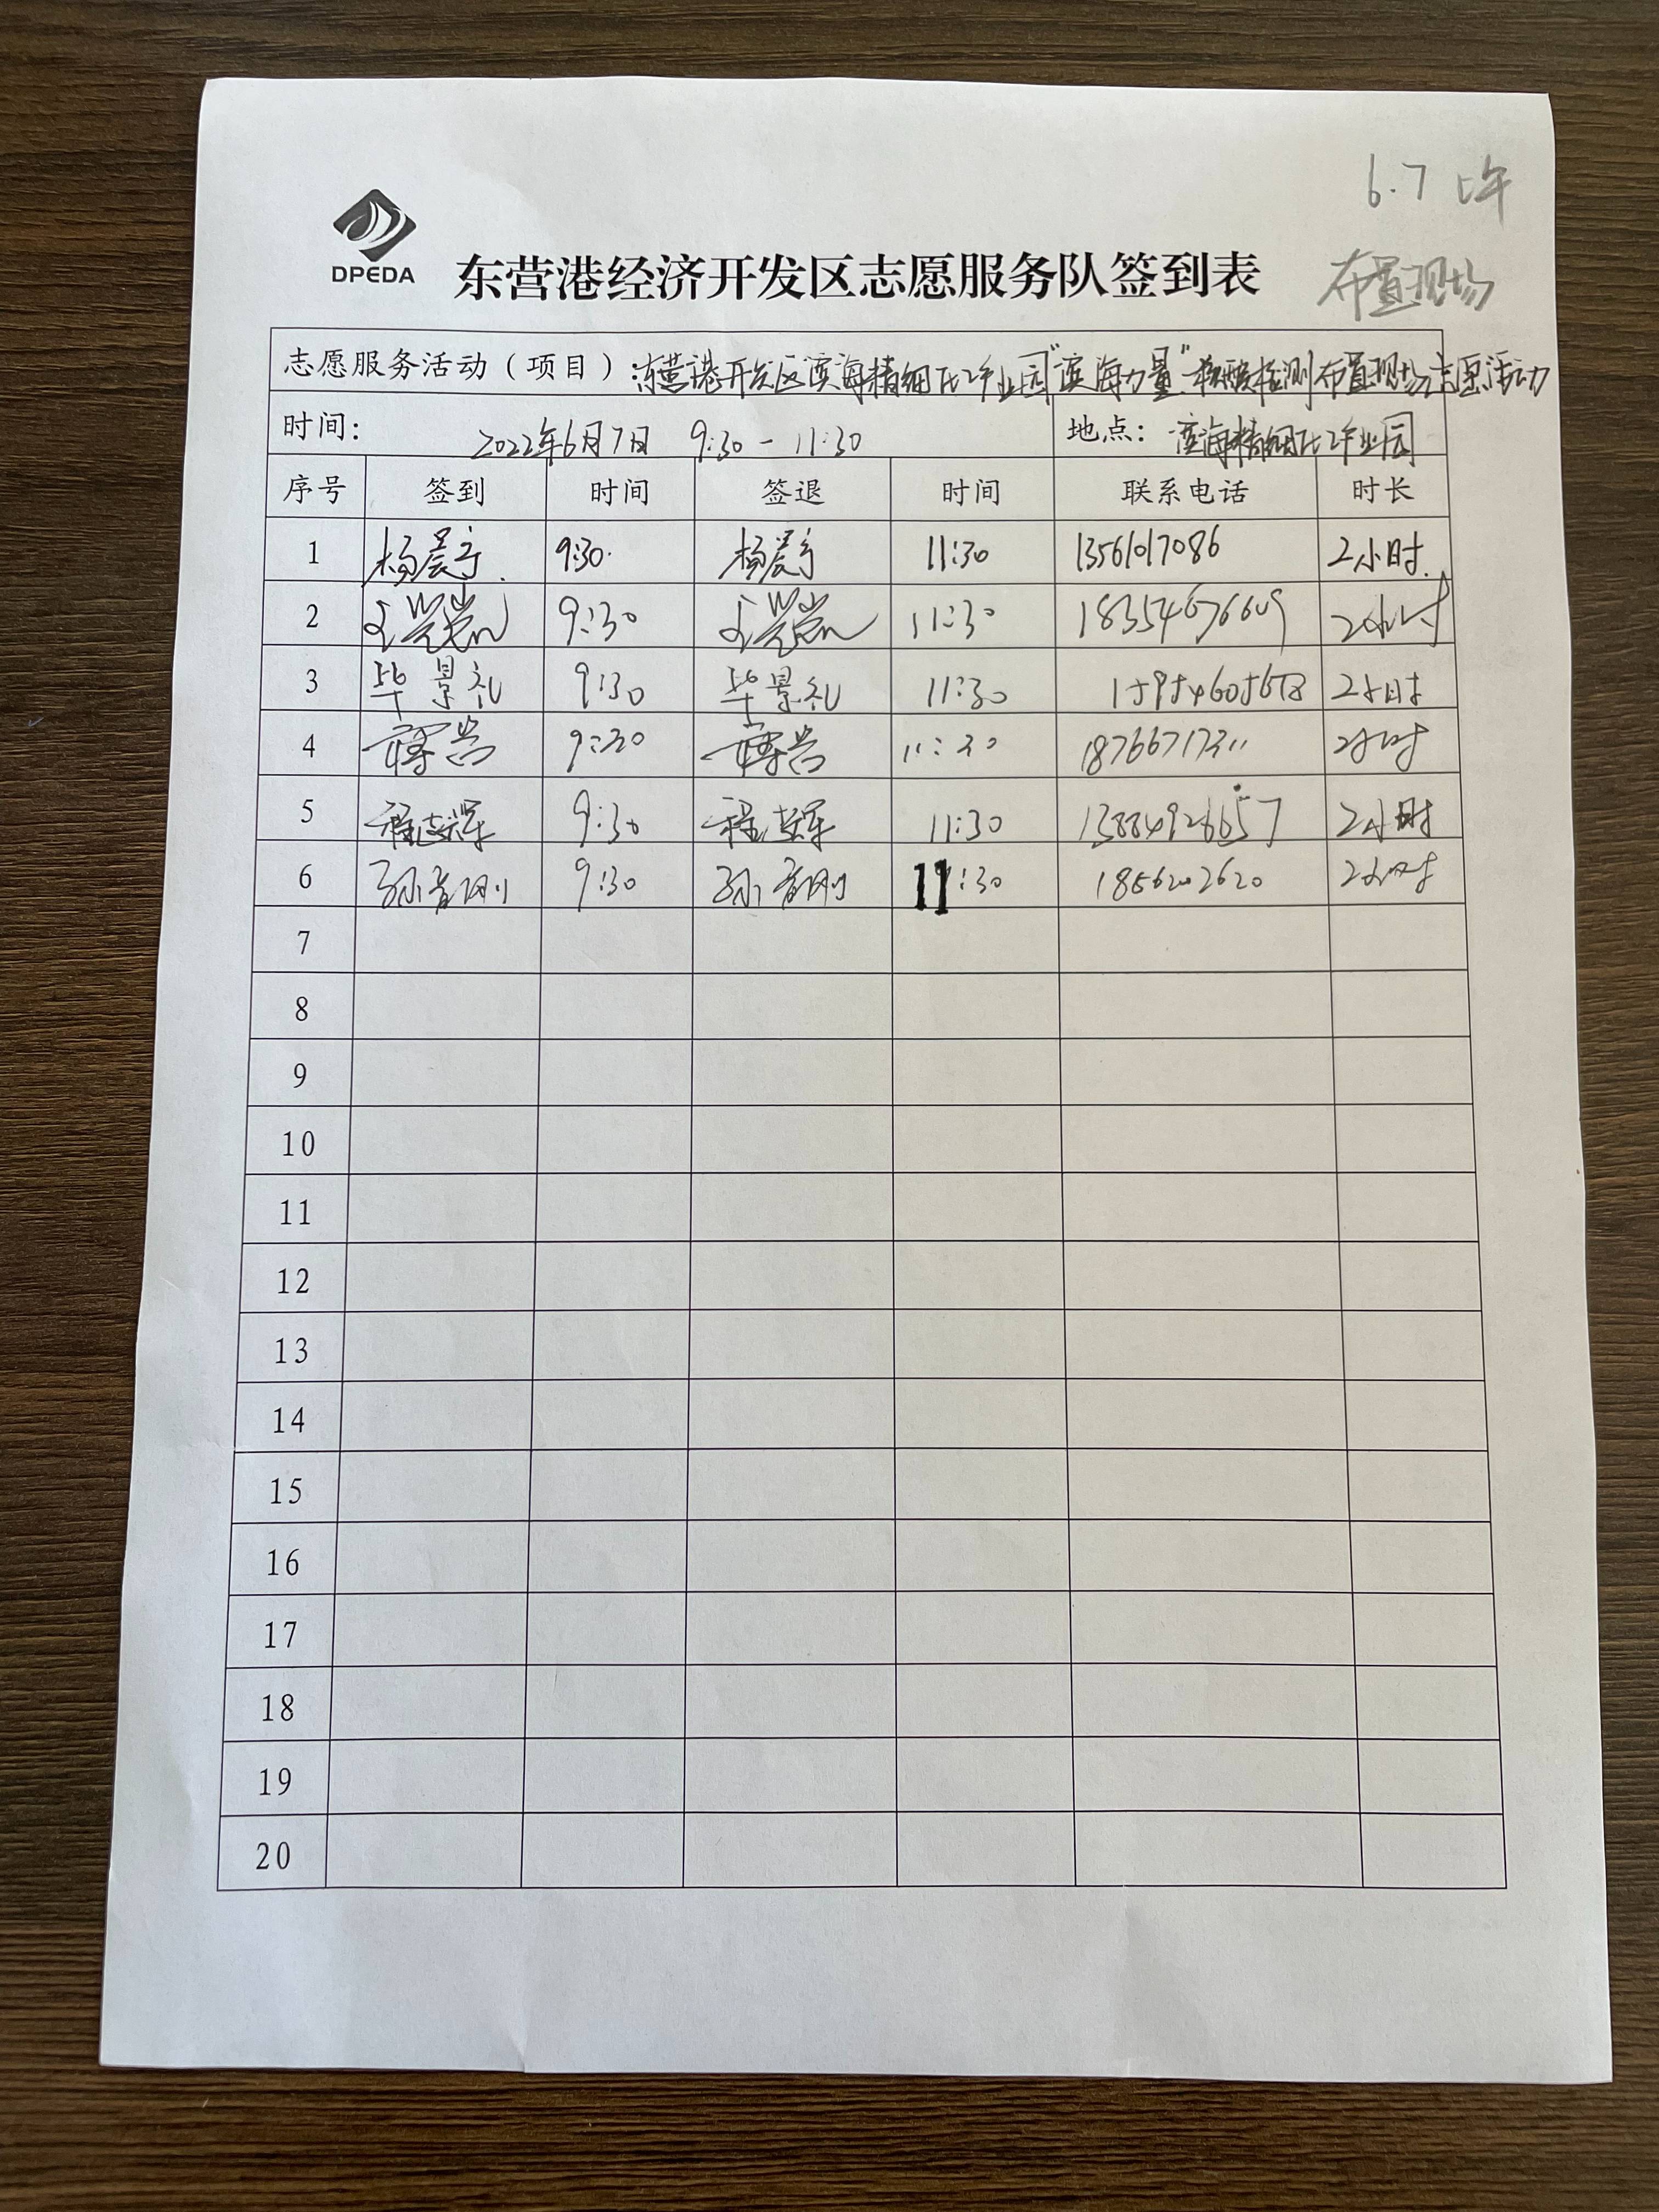 6.7 上午
DPEDA
东营港经济开发区志愿服务队签到表
布置现场
志愿服务活动（项目）东营港开发区滨海精细化工产业园"滨海力量"核酸检测布置现场志愿活动
时间： 2022年6月7日 9:30-11:30 地点： 滨海精细化工产业园
序号 签到 时间 签退 时间 联系电话 时长
1 杨晨宇 9:30 杨晨宇 11:30 13561017086 2小时
2 9:30 11:30 2小时
3 毕景礼 9:30 毕景礼 11:30 2小时
4 9:30 11:30 18766717311 2小时
5 程志军 9:30 程志军 11:30 2小时
6 9:30 11:30 2小时
7
8
9
10
11
12
13
14
15
16
17
18
19
20